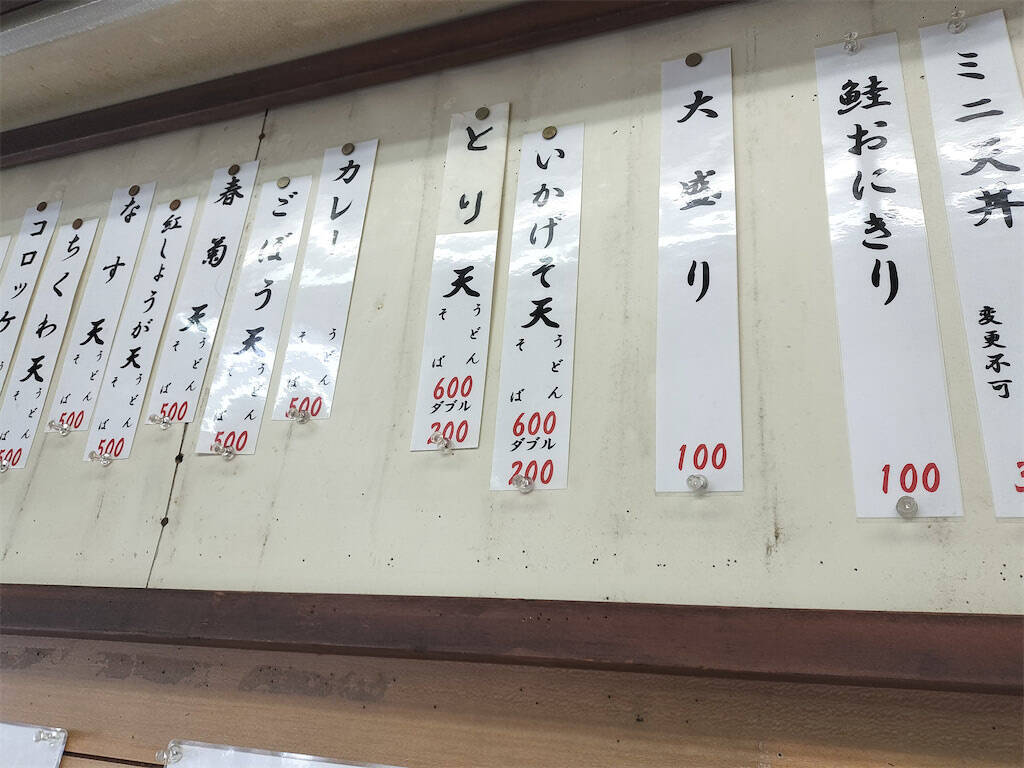 ミニ天丼
変更不可
鮭おにぎり
100
大盛り
100
いかげそ天
うどん
そば
600
ダブル
200
とり天
うどん
そば
600
ダブル
200
カレー
うどん
ば
500
ごぼう天
うどん
そば
500
春菊天
うどん
そば
500
紅しょうが天
うどん
そば
500
なす天
うどん
そば
500
ちくわ天
うどん
そば
500
コロッケ